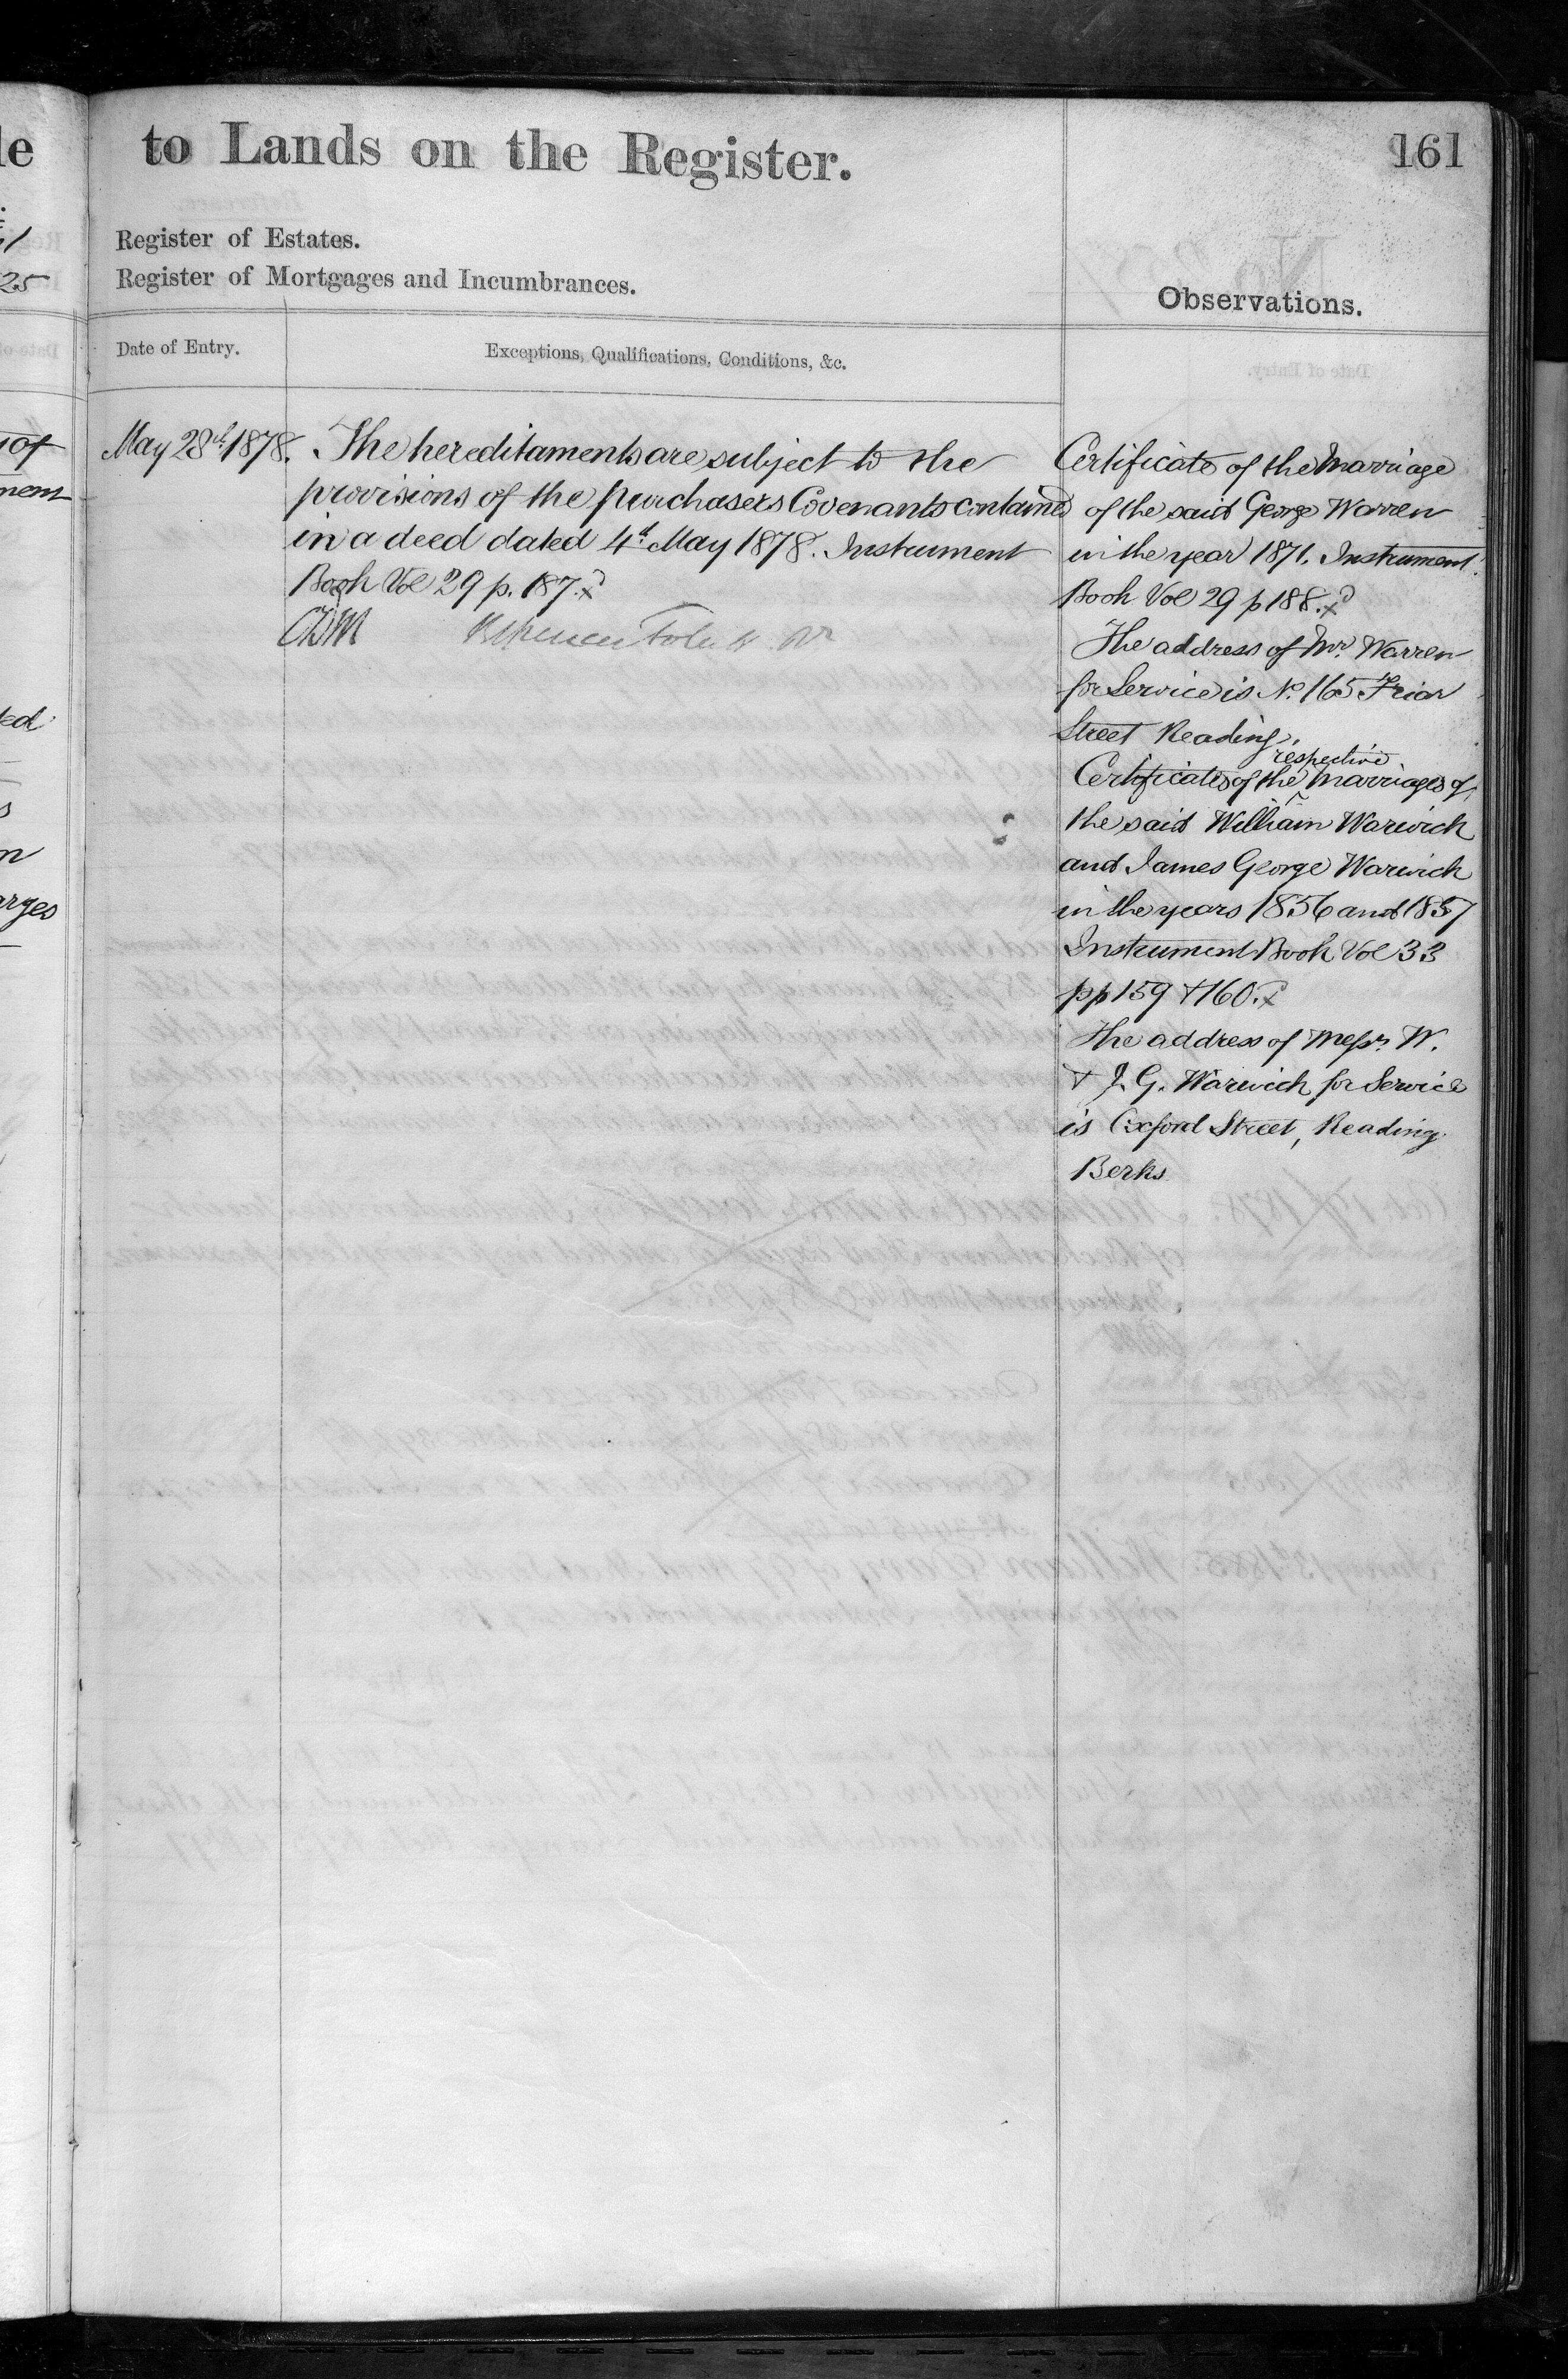 to Lands on the Register.
161
Register of Estates.
Register of Mortgages and Incumbrances.
Observations.
Date of Entry.
Exceptions, Qualifications, Conditions, &c.
May 28th 1878.
The hereditaments are subject to the
provisions of the purchasers Covenants contained
in a deed dated 4th May 1878. Instrument
Book Vol 29 p. 187.
Certificate of the Marriage
of the said George Warren
in the year 1871. Instrument
Book Vol 29 p 188.
The address of Mr. Warren
for Service is No. 165 Friar
Street Reading.
Certificates of the respective Marriages of
the said William Warwick
and James George Warwick
in the years 1856 and 1857
Instrument Book Vol 33
pp 159 & 160.
The address of Messrs. W.
& J. G. Warwick for Service
is Oxford Street, Reading
Berks